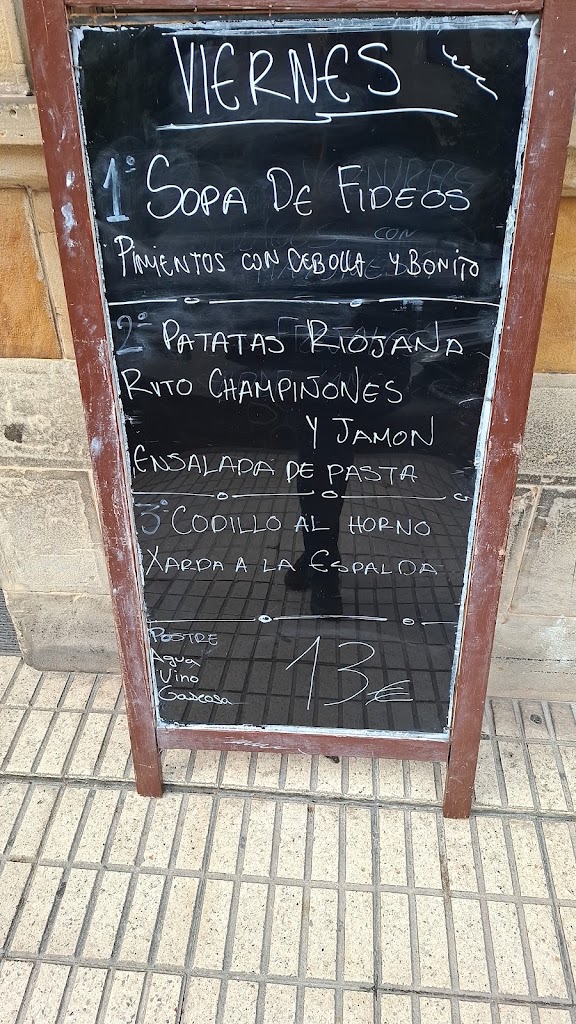 VIERNES
1º SOPA DE FIDEOS
PIMIENTOS CON CEBOLLA Y BONITO
2º PATATAS RIOJANA
RVTO CHAMPIÑONES
Y JAMON
ENSALADA DE PASTA
3º CODILLO AL HORNO
XARDA A LA ESPALDA
POSTRE
Agua
Vino
Gaseosa
13€